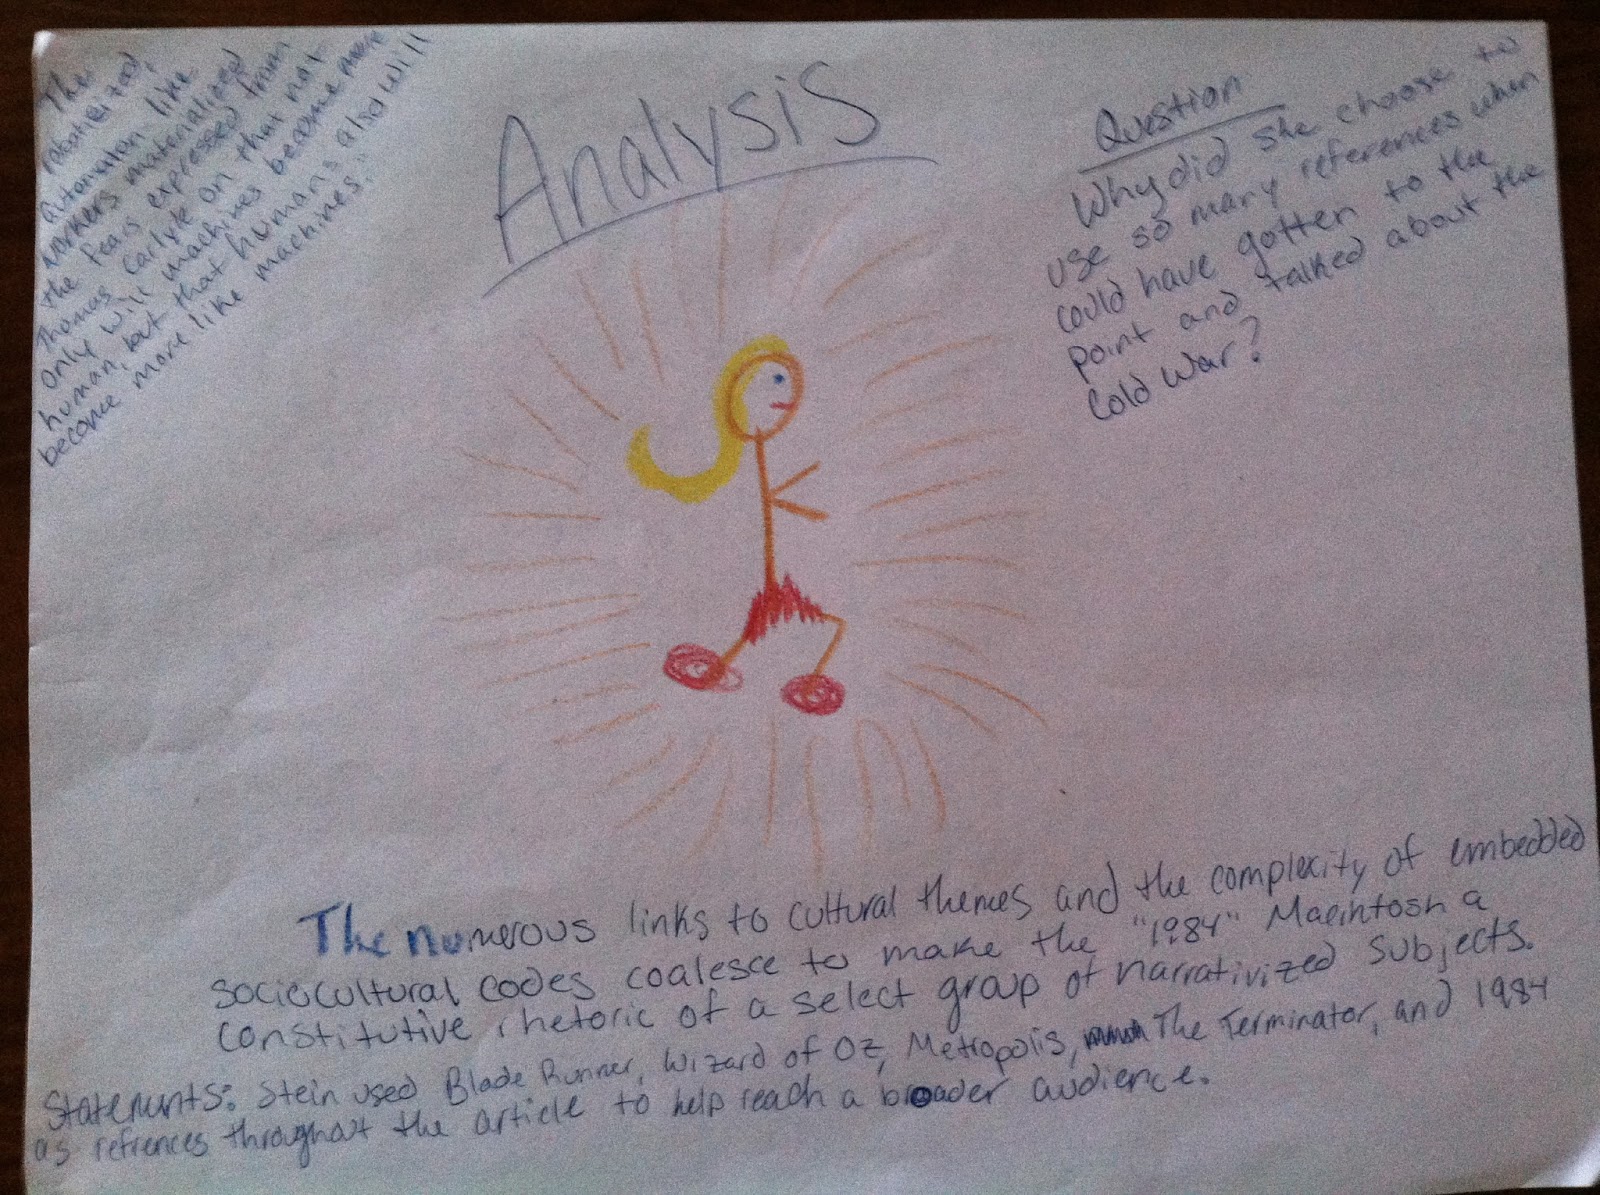 Analysis
The
robotized,
automaton-like
workers materialized
the fears expressed from
Thomas Carlyle on that not
only will machines become more
human, but that humans also will
become more like machines."
Question
Why did she choose to
use so many references when
could have gotten to the
point and talked about the
Cold War?
The numerous links to cultural themes and the complexity of embedded
sociocultural codes coalesce to make the "1984" Macintosh a
constitutive rhetoric of a select group of narrativized subjects.
Statements: Stein used Blade Runner, Wizard of Oz, Metropolis, The Terminator, and 1984
as refrences throughout the article to help reach a broader audience.